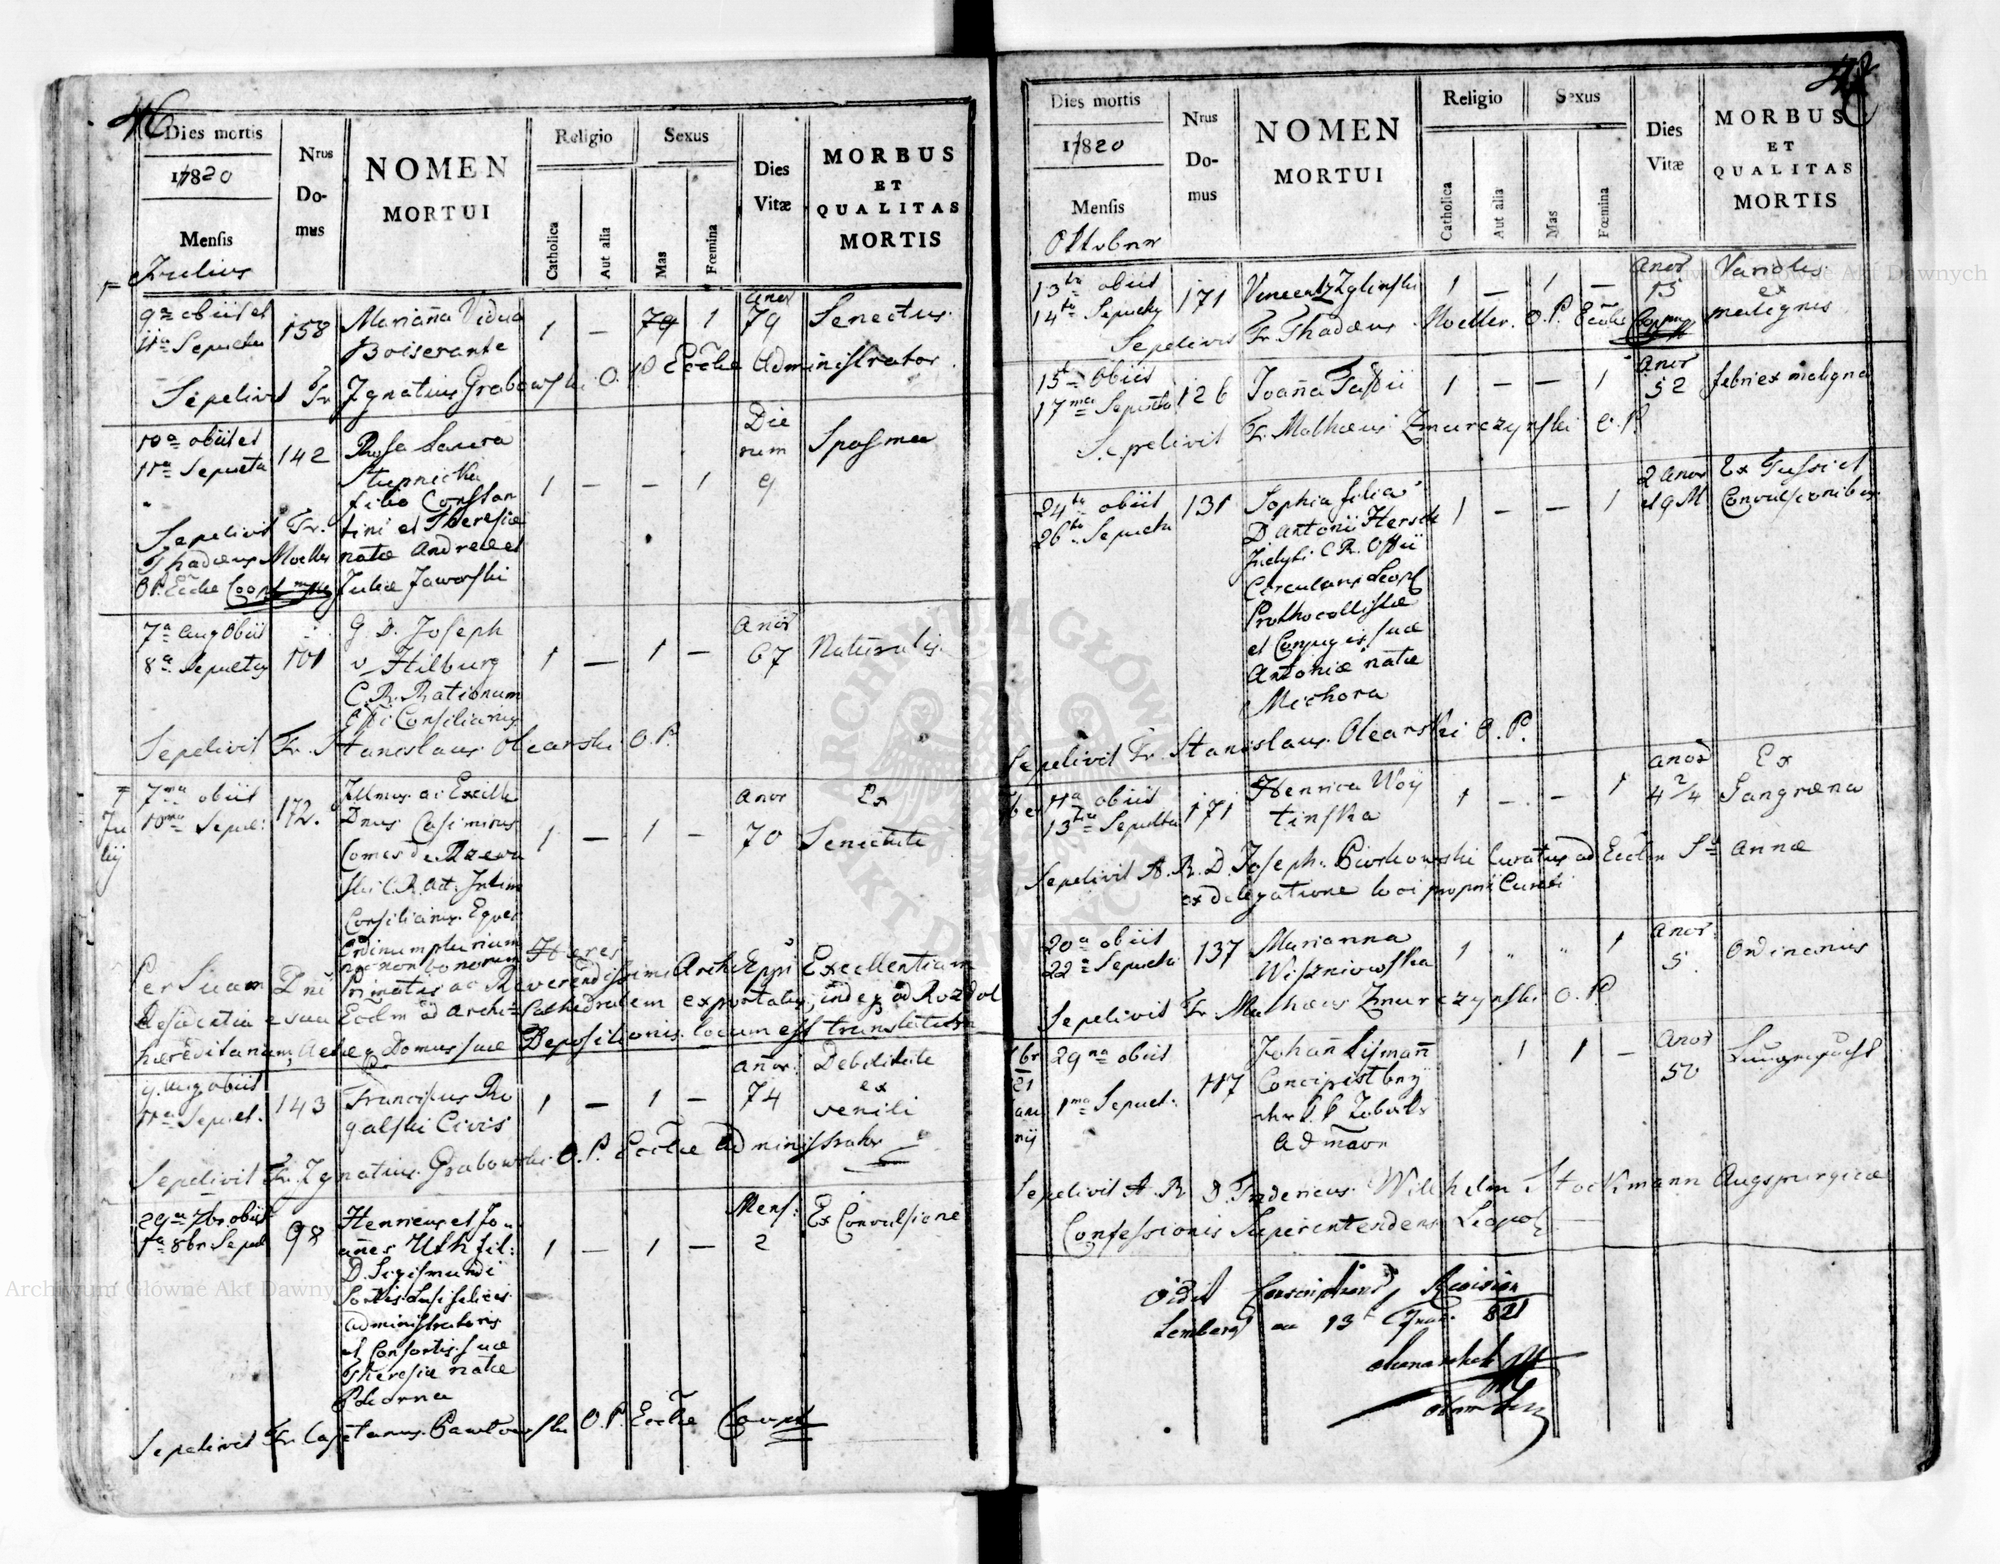 46
Dies mortis
1820
Mensis
Julius
Nrus Domus
NOMEN
MORTUI
Religio
Catholica
Aut alia
Sexus
Mas
Fœmina
Dies
Vitæ
MORBUS
ET
QUALITAS
MORTIS
9na obiit et
11a Sepulta
158
Mariaña Vidua
Boiserante
1 — 1
Anor
79
Senectus
Sepelivit Fr. Ignatius Grabowski O. P. Ecclæ Administrator
10a obiit et
11a Sepulta
142
Rosa Laura
Stupnicka
filia Constan
tini et Theresiæ
natæ Andreæ et
Juliæ Jaworski
1 — — 1
Die
rum
9
Spasma
Sepelivit Fr.
Thadæus Moeller
O.P. Ecclæ Coop
7a Aug obiit
8a Sepultus
101
G. D. Joseph
v. Hilburg
C. R. Rationum
Consiliarius
1 — 1 —
Anor
67
Naturalis
Sepelivit Fr. Stanislaus Olearski O. P.
7ma obiit
10ma Sepul:
172
Illmus ac Excell
Dnus Casimirus
Comes de Rzewu
ski C. R. Att. Intim
Consiliarius Eques
Ordinum plurium
nec non bonorum Heres
1 — 1 —
Anor
70
Ex
Senectute
Per Suam Dni Primatis ac Reverendissimi Archi Eppi Excellentiam
e sua Ecclm ad Archi-Cathedralem exportatus, inde ad Rozdol
hæreditariam Domus suæ Depositionis locum est translatum
9. Aug obiit
11a Sepult.
143
Franciscus Ro
galski Civis
1 — 1 —
Añor:
74
Debilitate
ex
senili
Sepelivit Fr. Ignatius Grabowski O. P. Ecclæ Administrator
29a 7br obiit
1a 8br Sepul
98
Henricus et Jo
añes Uth fil:
D. Sigismundi
Administratoris
et Consortis suæ
Theresiæ natæ
Pokorna
1 — 1 —
Mens:
2
Ex Convulsione
Sepelivit Fr. Cajetanus Pawlowski O. P. Ecclæ Coop
Dies mortis
1820
Mensis
Oktober
Nrus
Domus
NOMEN
MORTUI
Religio
Catholica
Aut alia
Sexus
Mas
Fœmina
Dies
Vitæ
MORBUS
ET
QUALITAS
MORTIS
13ta obiit
14ta Sepultus
171
Vincenty Zglinski
1 — 1 —
Anor
15
Variolis
ex
malignis
Sepelivit Fr. Thadæus Moeller O. P. Ecclæ Coop
15ta Obiit
17ma Sepulta
126
Joaña
1 — — 1
Anor
52
febri ex maligna
Sepelivit Fr. Mathæus Zmurczynski O. P.
24ta obiit
26ta Sepulta
131
Sophia filia
D. Antonii Hersch
C. R. Offii
Circularis Leopl
Prothocollistæ
et Conjugis suæ
Antoniæ natæ
Michora
1 — — 1
2 Anor
et 9 M
Ex Tussi et
Convulsionibus
Sepelivit Fr. Stanislaus Olearski O. P.
11a obiit
13tia Sepulta
171
Henrica Woy
tinska
1 — — 1
Anor
4 2/4
Ex
Gangræna
Sepelivit A. R. D. Joseph. Piorkowski Curatus ad Ecclm Stæ Annæ
ex delegatione loci proprii Curati
20a obiit
22a Sepulta
137
Marianna
Wiszniowska
1 " " 1
Anor
5
Ordinarius
Sepelivit Fr. Mathæus Zmurczynski O. P.
29na obiit
1ma Sepult:
117
Johañ Lismañ
Concipist bey
1 1 —
Anor
50
Lungensucht
Sepelivit A. R. D. Fridericus Wilhelm Stockmann Augspurgicæ
Confessionis Superintendens Leopol
Vidit Conscriptions Revision
Lemberg am 13t Jner 821
ARCHIWUM GŁÓWNE AKT DAWNYCH
Archiwum Główne Akt Dawnych
Archiwum Główne Akt Dawnych